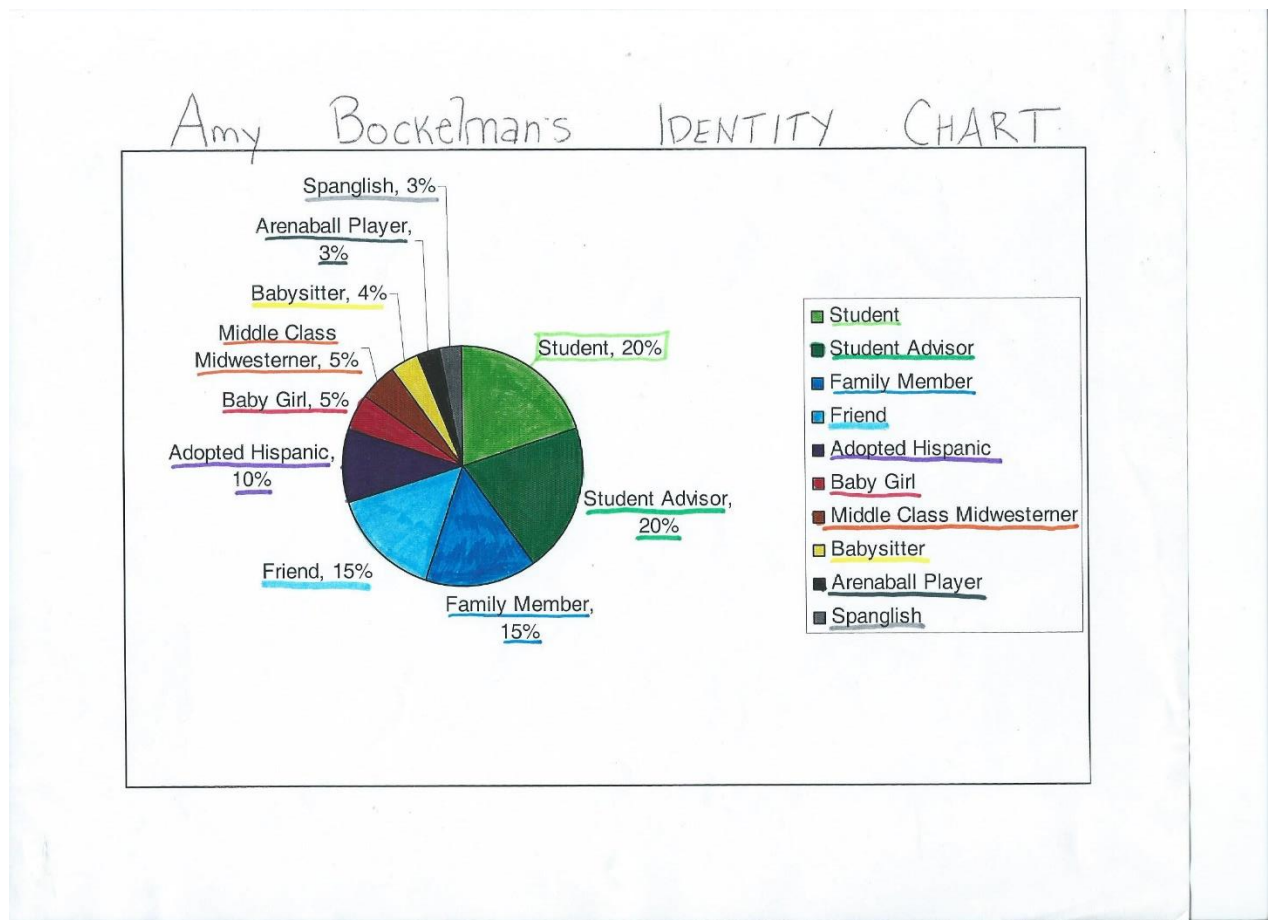 Amy Bockelman's IDENTITY CHART
Spanglish, 3%
Arenaball Player,
3%
Babysitter, 4%
Middle Class
Midwesterner, 5%
Baby Girl, 5%
Adopted Hispanic,
10%
Friend, 15%
Family Member,
15%
Student Advisor,
20%
Student, 20%
Student
Student Advisor
Family Member
Friend
Adopted Hispanic
Baby Girl
Middle Class Midwesterner
Babysitter
Arenaball Player
Spanglish